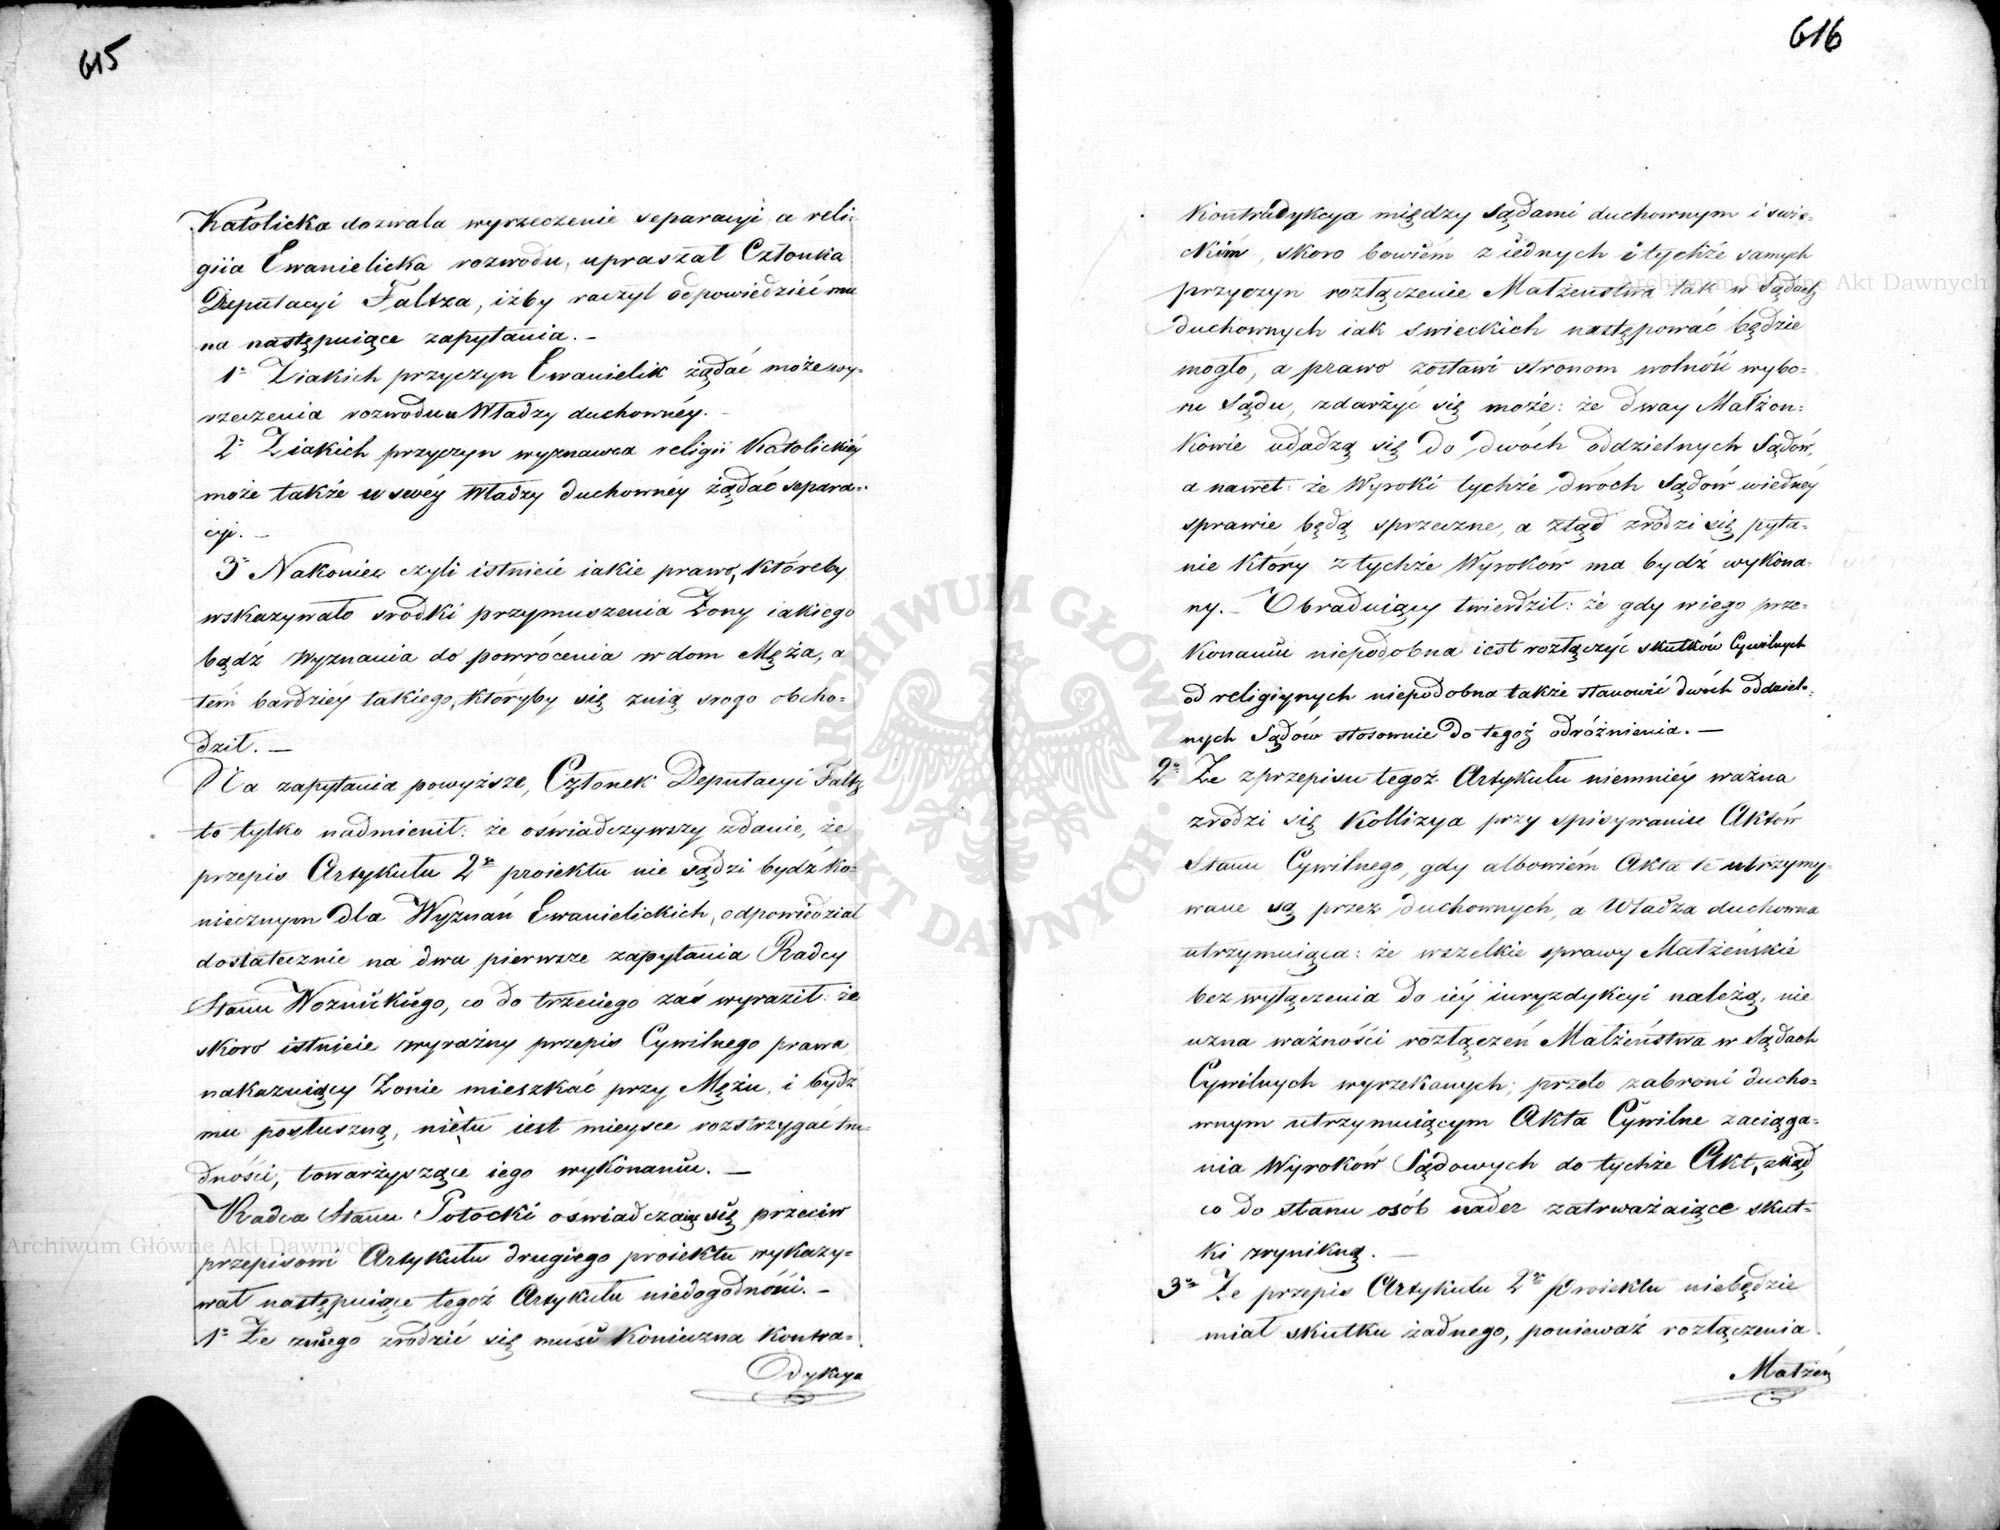 615
Katolicka dozwala wyrzeczenie separacyi a reli=
giia Ewanielicka rozwodu, upraszał Członka
Deputacyi Faltza, iżby raczył odpowiedzieć mu
na następuiące zapytania. –
1º Z iakich przyczyn Ewanielik żądać może wy=
rzeczenia rozwodu u Władzy duchownéy. –
2º Z iakich przyczyn wyznawca religii Katolickiéy
może także u swéy Władzy duchownéy żądać separa=
cyi. –
3º Nakoniec czyli istnieie iakie prawo, któreby
wskazywało srodki przymuszenia Żony iakiego
bądź Wyznania do powrócenia w dom Męża, a
tém bardziéy takiego, któryby się znią srogo obcho=
dził. –
Na zapytania powyższe, Członek Deputacyi Faltz
to tylko nadmienił: że oświadczywszy zdanie, że
przepis Artykułu 2go proiektu nie sądzi bydź ko=
niecznym dla Wyznań Ewanielickich, odpowiedział
dostatecznie na dwa pierwsze zapytania Radcy
Stanu Woznickiego, co do trzeciego zaś wyraził: że
skoro istnieie wyraźny przepis Cywilnego prawa
nakazuiący Żonie mieszkać przy Mężu, i bydź
mu posłuszną, nie tu iest mieysce rozstrzygać tru=
dności, towarzyszące iego wykonaniu. –
Radca Stanu Potocki oświadczaiąc się przeciw
przepisowi Artykułu drugiego proiektu wykazy=
wał następuiące tegoż Artykułu niedogodności. –
1º Że z niego zrodzić się musi konieczna kontra=
dykcya
616
Kontradykcya między sądami duchownym i świe=
ckim, skoro bowiém z iednych i tychże samych
przyczyn rozłączenie Małżeństwa tak w Sądach
duchownych iak świeckich następować będzie
mogło, a prawo zostawi stronom wolność wybo=
ru Sądu, zdarzyć się może: że dway Małżon=
kowie udadzą się do dwóch oddzielnych Sądów,
a nawet: że Wyroki tychże dwóch Sądów w iednéy
sprawie będą sprzeczne, a ztąd zrodzi się pyta=
nie który z tychże Wyroków ma bydź wykona=
ny. – Obraduiący twierdził: że gdy w iego prze=
konaniu niepodobna iest rozłączyć skutków Cywilnych
od religiynych niepodobna także stanowić dwóch oddziel=
nych Sądów stosownie do tegoż odróżnienia. –
2º Że z przepisu tegoż Artykułu niemniéy ważna
zrodzi się Kollizya przy spisywaniu Aktów
Stanu Cywilnego, gdy albowiém Akta te utrzymy=
wane są przez duchownych, a Władza duchowna
utrzymuiąca: że wszelkie sprawy Małżeńskie
bez wyłączenia do iéy iuryzdykcyi należą, nie
uzna ważności rozłączeń Małżeństwa w Sądach
Cywilnych wyrzekanych; przeto zabroni ducho=
wnym utrzymuiącym Akta Cywilne zaciąga=
nia Wyroków Sądowych do tychże Akt, zkąd
co do stanu osób nader zatrważaiące skut=
ki wynikną. –
3º Że przepis Artykułu 2go Proiektu niebędzie
miał skutku żadnego, ponieważ rozłączenia
Małżeń
ARCHIWUM GŁÓWNE AKT DAWNYCH
Archiwum Główne Akt Dawnych
Archiwum Główne Akt Dawnych